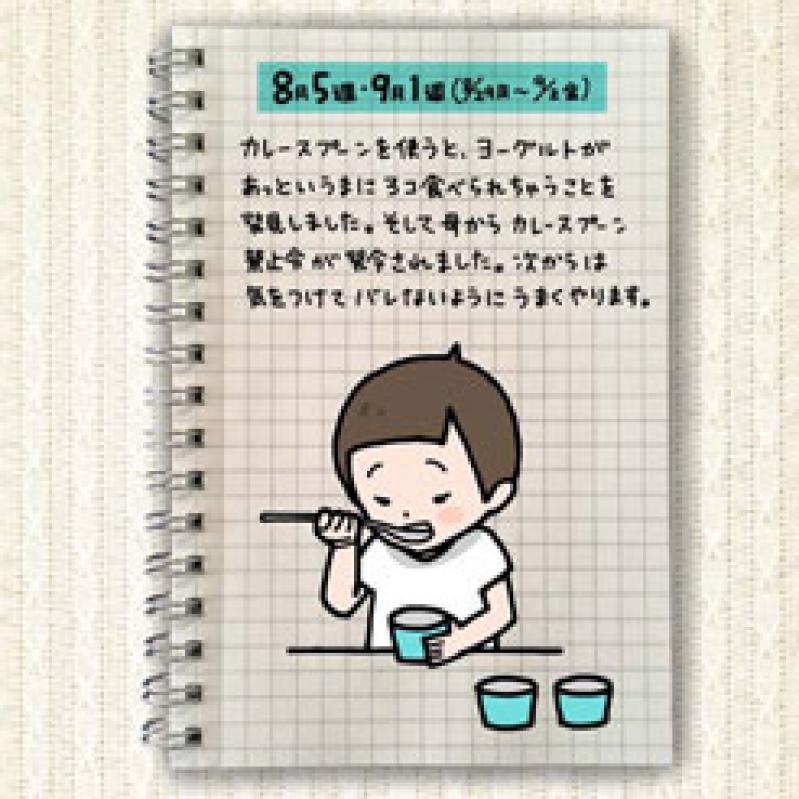 8月5週・9月1週(8/29月〜9/2金)
カレースプーンを使うと、ヨーグルトが
あっというまに3コ食べられちゃうことを
発見しました。そして母からカレースプーン
禁止令が発令されました。次からは
気をつけてバレないようにうまくやります。